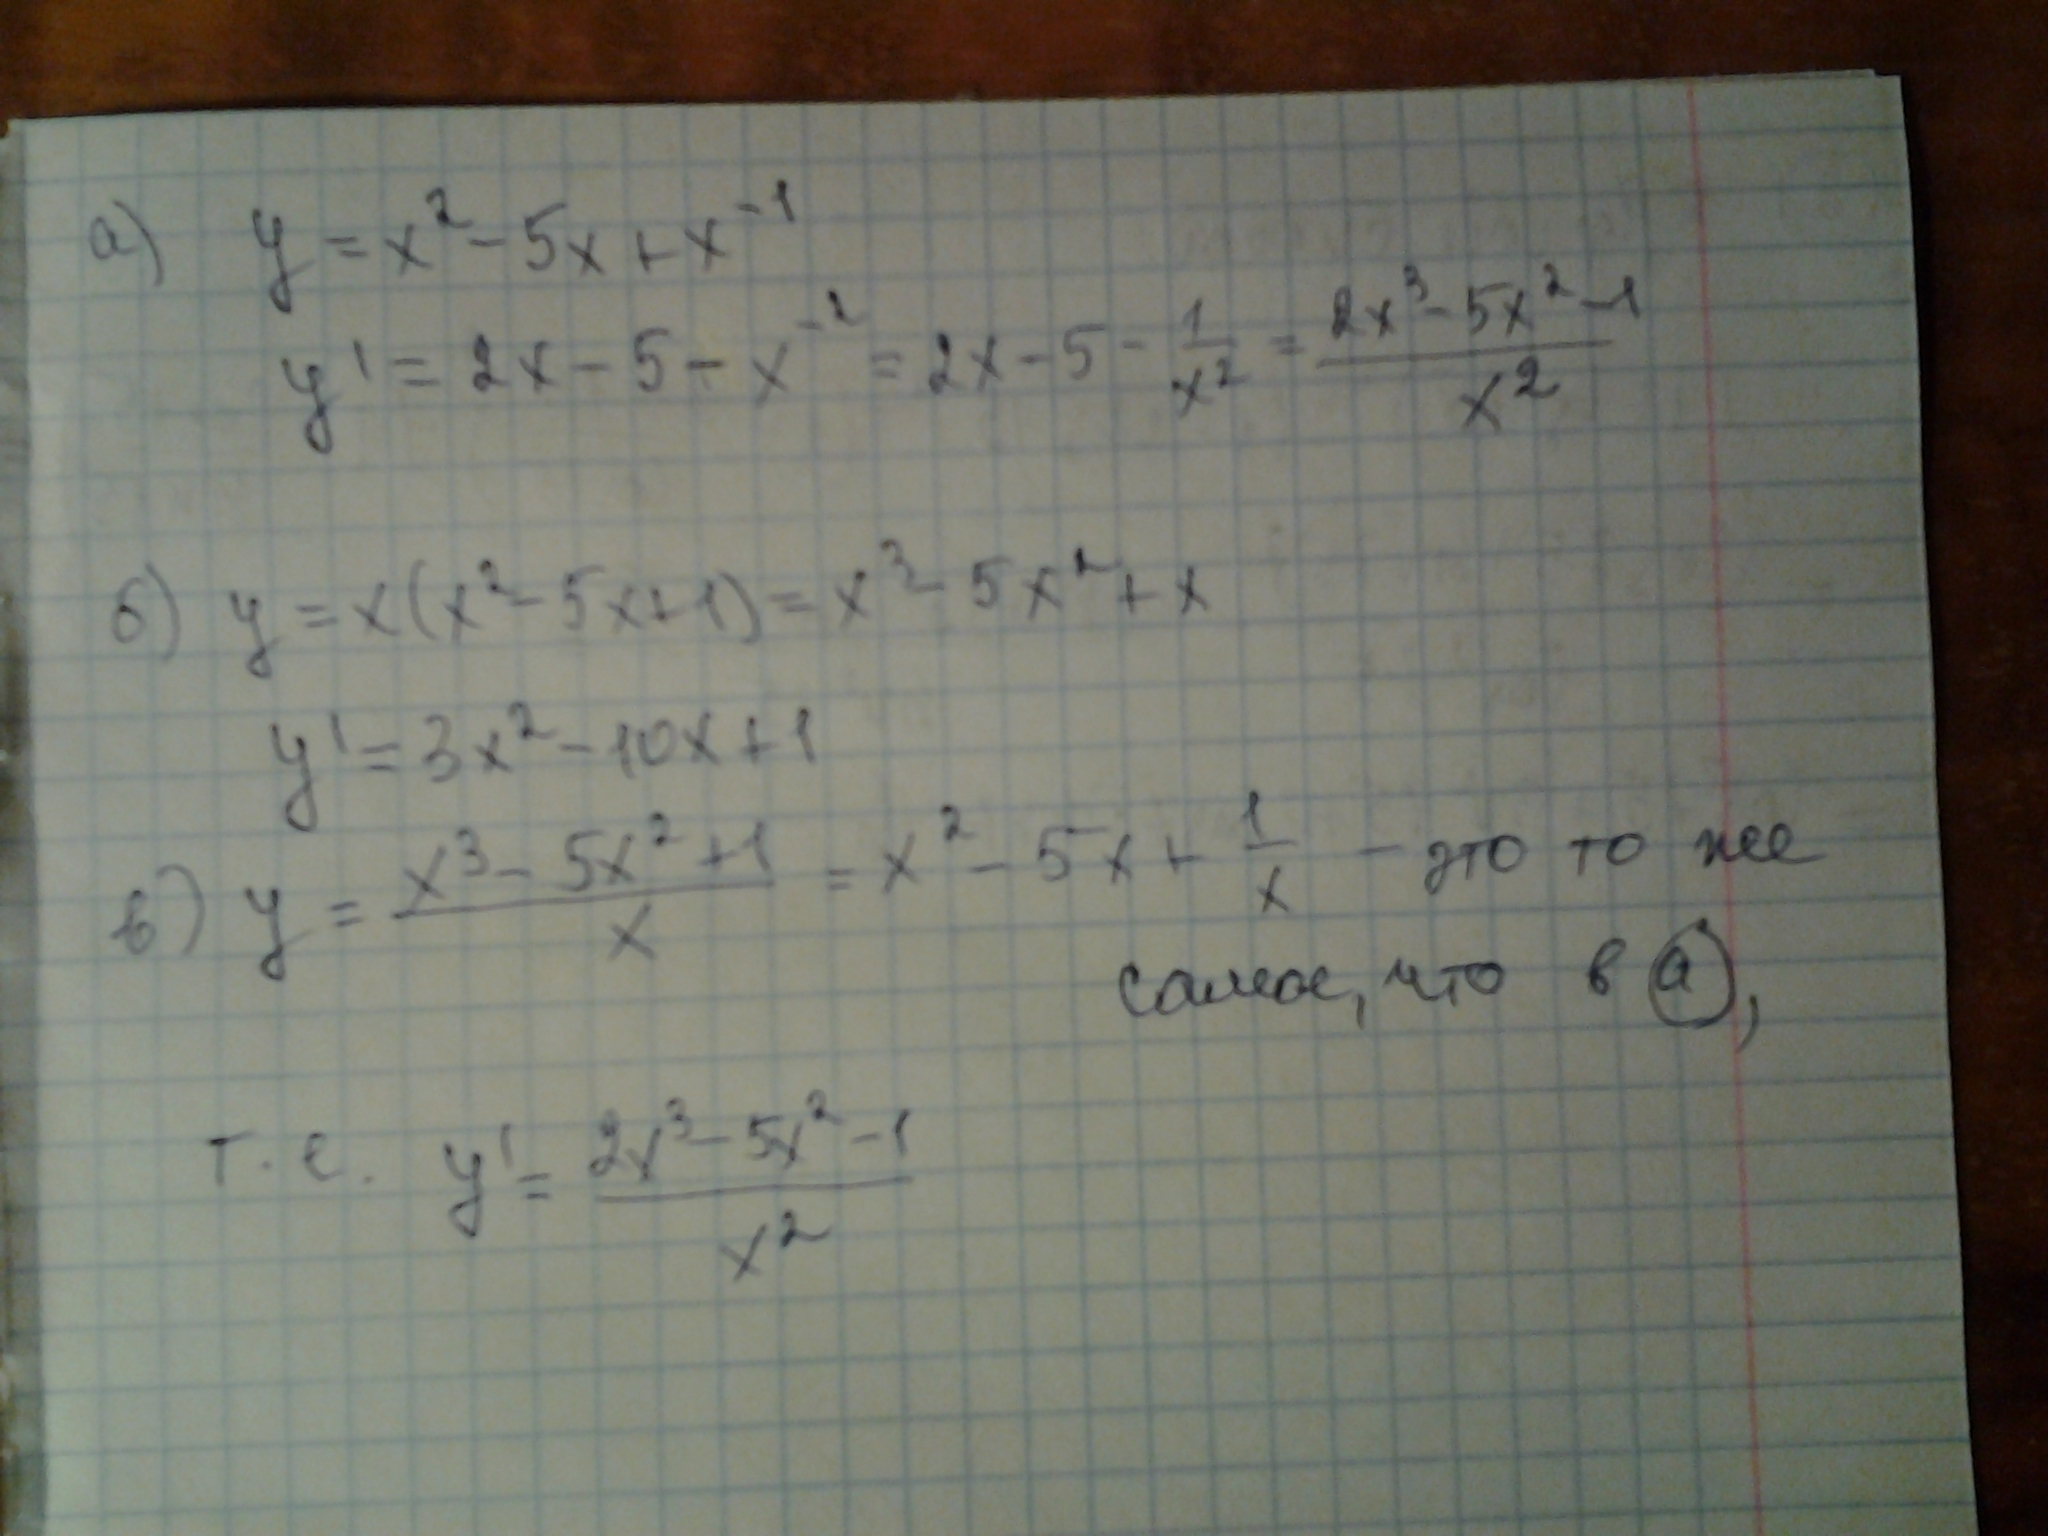 а) y = x² - 5x + x⁻¹
y' = 2x - 5 - x⁻² = 2x - 5 - 1/x² = (2x³ - 5x² - 1)/x²
б) y = x(x² - 5x + 1) = x³ - 5x² + x
y' = 3x² - 10x + 1
в) y = (x³ - 5x² + 1)/x = x² - 5x + 1/x - это то же
самое, что в (а),
т. е. y' = (2x³ - 5x² - 1)/x²